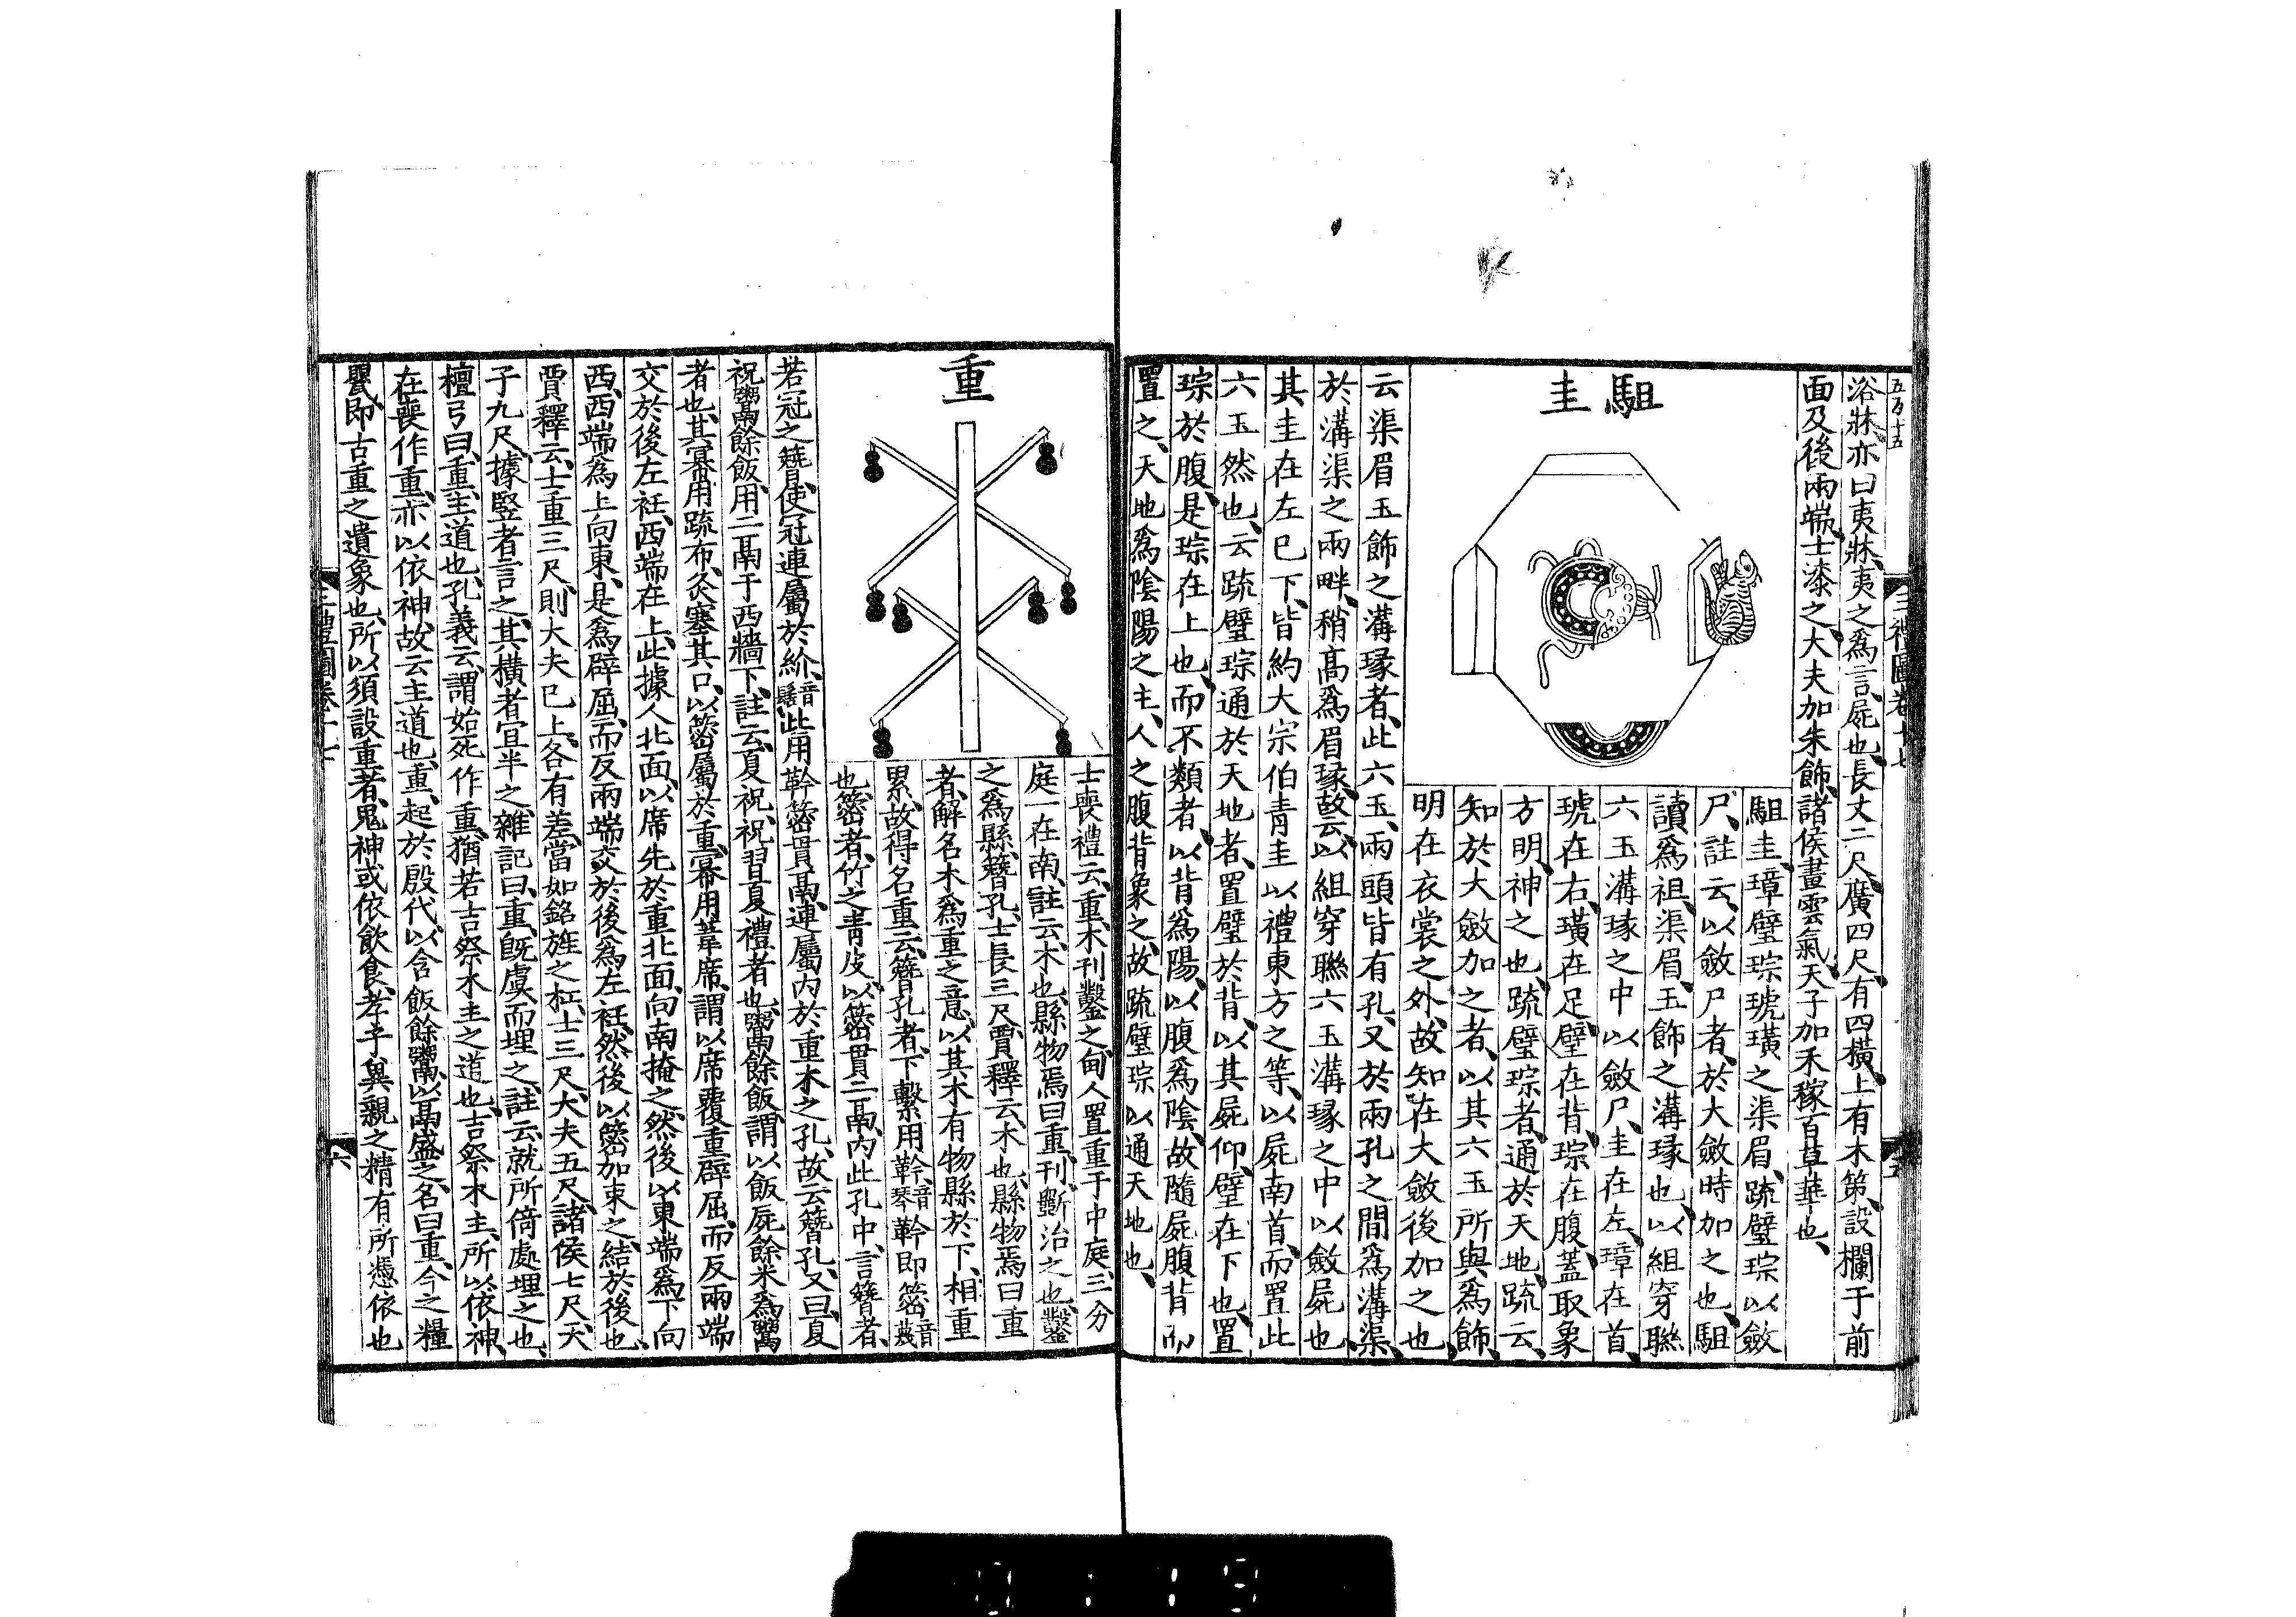 浴牀亦曰夷牀夷之爲言屍也長丈二尺廣四尺有四橫上有木第設欄于前
面及後兩端士漆之大夫加朱飾諸侯畫雲氣天子加禾稼百草華也
駔圭
駔圭璋璧琮琥璜之渠眉疏璧琮以斂
尸註云以斂尸者於大斂時加之也駔
讀爲組渠眉玉飾之溝瑑也以組穿聯
六玉溝瑑之中以斂尸圭在左璋在首
琥在右璜在足璧在背琮在腹蓋取象
方明神之也疏璧琮者通於天地疏云
知於大斂加之者以其六玉所與爲飾
明在衣裳之外故知在大斂後加之也
云渠眉玉飾之溝瑑者此六玉兩頭皆有孔又於兩孔之間爲溝渠
於溝渠之兩畔稍高爲眉瑑故云以組穿聯六玉溝瑑之中以斂屍也
其圭在左已下皆約大宗伯青圭以禮東方之等以屍南首而置此
六玉然也云疏璧琮通於天地者置璧於背以其屍仰璧在下也置
琮於腹是琮在上也而不類者以背爲陽以腹爲陰故隨屍腹背而
置之天地爲陰陽之主人之腹背象之故疏璧琮以通天地也
三禮圖卷十七
重
士喪禮云重木刊鑿之甸人置重于中庭三分
庭一在南註云木也縣物焉曰重刊斲治之也鑿
之爲縣簪孔士長三尺賈釋云木也縣物焉曰重
者解名木爲重之意以其木有物縣於下相重
累故得名重云簪孔者下繫用靲音琴靲即䈼音蔑
也䈼者竹之青皮以䈼貫二鬲內此孔中言簪者
若冠之簪使冠連屬於紒音髻此用靲䈼貫鬲連屬內於重木之孔故云簪孔又曰夏
祝鬻餘飯用二鬲于西牆下註云夏祝祝習夏禮者也鬻餘飯謂以飯屍餘米爲鬻
者也其冪用疏布灸塞其口以䈼屬於重冪用葦席謂以席覆重辟屈而反兩端
交於後左衽西端在上此據人北面以席先於重北面向南掩之然後以東端爲下向
西西端爲上向東是爲辟屈而反兩端交於後爲左衽然後以䈼加束之結於後也
賈釋云士重三尺則大夫已上各有差當如銘旌之杠士三尺大夫五尺諸侯七尺天
子九尺據豎者言之其橫者宜半之雜記曰重旣虞而埋之註云就所倚處埋之也
檀弓曰重主道也孔義云謂始死作重猶若吉祭木主之道也吉祭木主所以依神
在喪作重亦以依神故云主道也重起於殷代以含飯餘鬻以鬲盛之名曰重今之糧
甖即古重之遺象也所以須設重者鬼神或依飲食孝子冀親之精有所憑依也
三禮圖卷十七
六